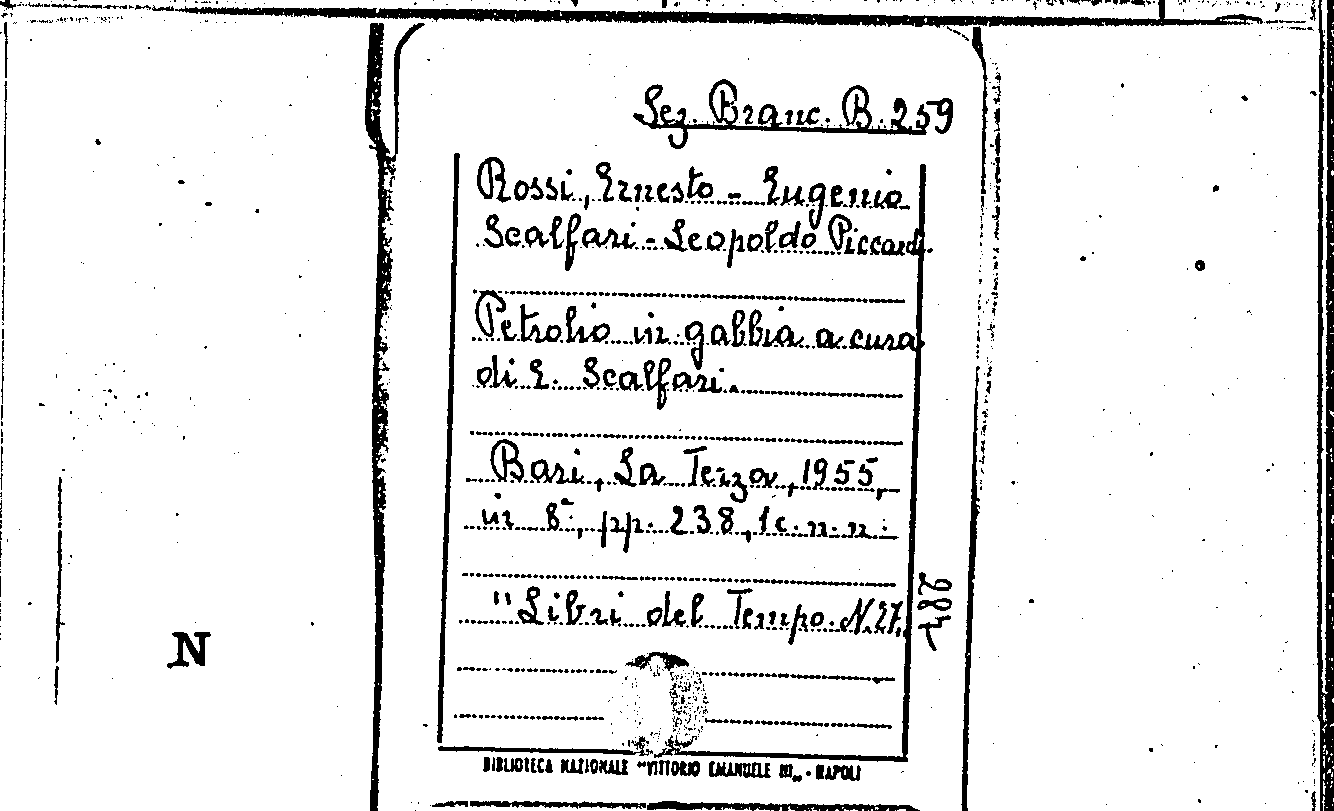 Sez. Branc. B. 259
Rossi, Ernesto - Eugenio
Scalfari - Leopoldo Piccardi.
Petrolio in gabbia a cura
di E. Scalfari.
Bari, La Terza, 1955,
in 8°, pp. 238, 1 c. n. n.
"Libri del Tempo. N. 27„
N
BIBLIOTECA NAZIONALE "VITTORIO EMANUELE III„ - NAPOLI